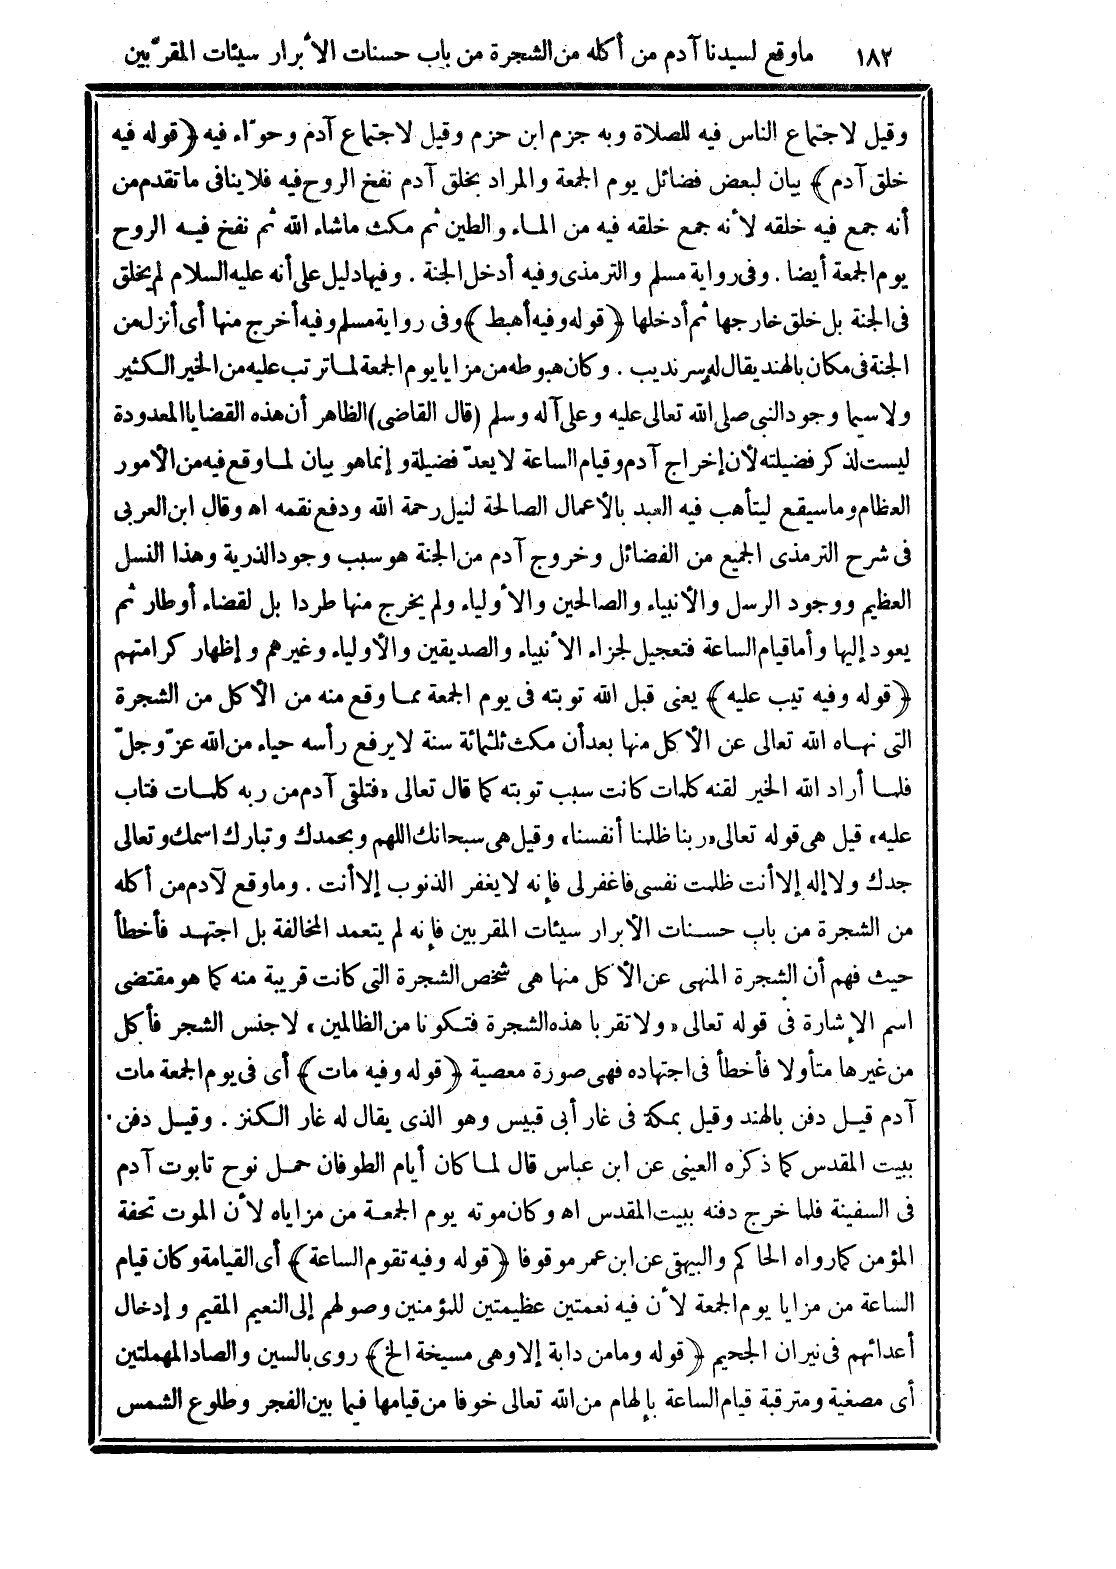 ١٨٢ ماوقع لسيدنا آدم من أكله من الشجرة من باب حسنات الأبرار سيئات المقرّبين
وقيل لاجتماع الناس فيه للصلاة وبه جزم ابن حزم وقيل لاجتماع آدم وحوّاء فيه ﴿قوله فيه
خلق آدم﴾ بيان لبعض فضائل يوم الجمعة والمراد بخلق آدم نفخ الروح فيه فلاينافى ماتقدم من
أنه جمع فيه خلقه لأنه جمع خلقه فيه من الماء والطين ثم مكث ماشاء الله ثم نفخ فيه الروح
يوم الجمعة أيضا . وفى رواية مسلم والترمذى وفيه أدخل الجنة . وفيها دليل على أنه عليه السلام لم يخلق
فى الجنة بل خلق خارجها ثم أدخلها ﴿قوله وفيه أهبط﴾ وفى رواية مسلم وفيه أخرج منها أى أنزل من
الجنة فى مكان بالهند يقال له سرنديب . وكان هبوطه من مزايا يوم الجمعة لما ترتب عليه من الخير الكثير
ولاسيما وجود النبى صلى الله تعالى عليه وعلى آله وسلم (قال القاضى) الظاهر أن هذه القضايا المعدودة
ليست لذكر فضيلته لأن إخراج آدم وقيام الساعة لا يعدّ فضيلة وإنما هو بيان لما وقع فيه من الأمور
العظام وما سيقع ليتأهب فيه العبد بالأعمال الصالحة لنيل رحمة الله ودفع نقمه اه وقال ابن العربى
فى شرح الترمذى الجميع من الفضائل وخروج آدم من الجنة هو سبب وجود الذرية وهذا النسل
العظيم ووجود الرسل والأنبياء والصالحين والأولياء ولم يخرج منها طردا بل لقضاء أوطار ثم
يعود إليها وأما قيام الساعة فتعجيل لجزاء الأنبياء والصديقين والأولياء وغيرهم وإظهار كرامتهم
﴿قوله وفيه تيب عليه﴾ يعنى قبل الله توبته فى يوم الجمعة مما وقع منه من الأكل من الشجرة
التى نهاه الله تعالى عن الأكل منها بعد أن مكث ثلثمائة سنة لا يرفع رأسه حياء من الله عزّ وجلّ
فلما أراد الله الخير لقنه كلمات كانت سبب توبته كما قال تعالى «فتلقى آدم من ربه كلمات فتاب
عليه» قيل هى قوله تعالى «ربنا ظلمنا أنفسنا» وقيل هى سبحانك اللهم وبحمدك وتبارك اسمك وتعالى
جدك ولا إله إلا أنت ظلمت نفسى فاغفر لى فإنه لا يغفر الذنوب إلا أنت . وما وقع لآدم من أكله
من الشجرة من باب حسنات الأبرار سيئات المقربين فإنه لم يتعمد المخالفة بل اجتهد فأخطأ
حيث فهم أن الشجرة المنهى عن الأكل منها هى شخص الشجرة التى كانت قريبة منه كما هو مقتضى
اسم الإشارة فى قوله تعالى «ولا تقربا هذه الشجرة فتكونا من الظالمين» لا جنس الشجر فأكل
من غيرها متأولا فأخطأ فى اجتهاده فهى صورة معصية ﴿قوله وفيه مات﴾ أى فى يوم الجمعة مات
آدم قيل دفن بالهند وقيل بمكة فى غار أبى قبيس وهو الذى يقال له غار الكنز . وقيل دفن
ببيت المقدس كما ذكره العينى عن ابن عباس قال لما كان أيام الطوفان حمل نوح تابوت آدم
فى السفينة فلما خرج دفنه ببيت المقدس اه وكان موته يوم الجمعة من مزاياه لأن الموت تحفة
المؤمن كما رواه الحاكم والبيهقى عن ابن عمر موقوفا ﴿قوله وفيه تقوم الساعة﴾ أى القيامة وكان قيام
الساعة من مزايا يوم الجمعة لأن فيه نعمتين عظيمتين للمؤمنين وصولهم إلى النعيم المقيم وإدخال
أعدائهم فى نيران الجحيم ﴿قوله وما من دابة إلا وهى مسيخة الخ﴾ روى بالسين والصاد المهملتين
أى مصغية ومترقبة قيام الساعة بإلهام من الله تعالى خوفا من قيامها فيما بين الفجر وطلوع الشمس